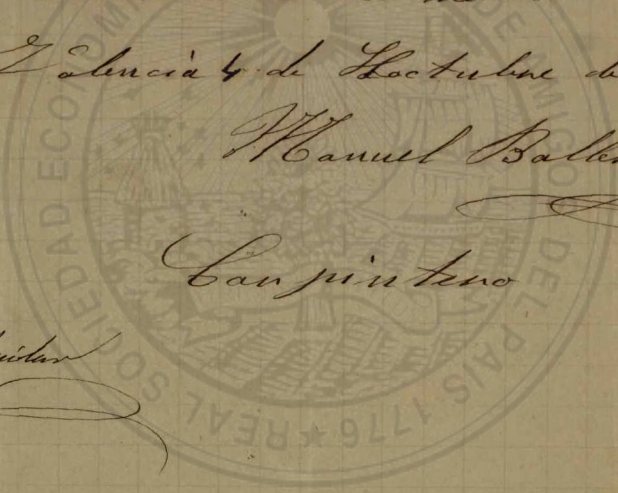 Valencia 4 de Hoctubre de
Manuel Balle
Carpintero
REAL SOCIEDAD ECONOM DE AMIGO DEL PAIS 1776